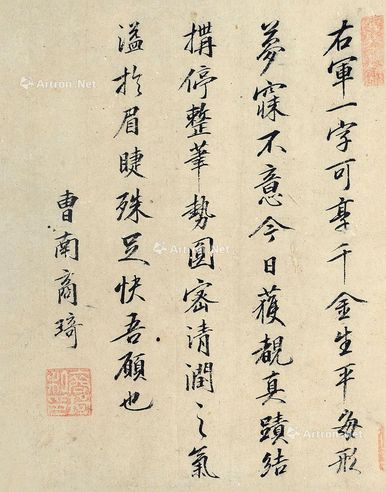 右軍一字可享千金生平每形
夢寐不意今日獲覩真蹟結
搆停整筆勢圓密清潤之氣
溢於眉睫殊足快吾願也
曹南商琦
Artron.Net
Artron.Net
Artron.Net
Artron.Net